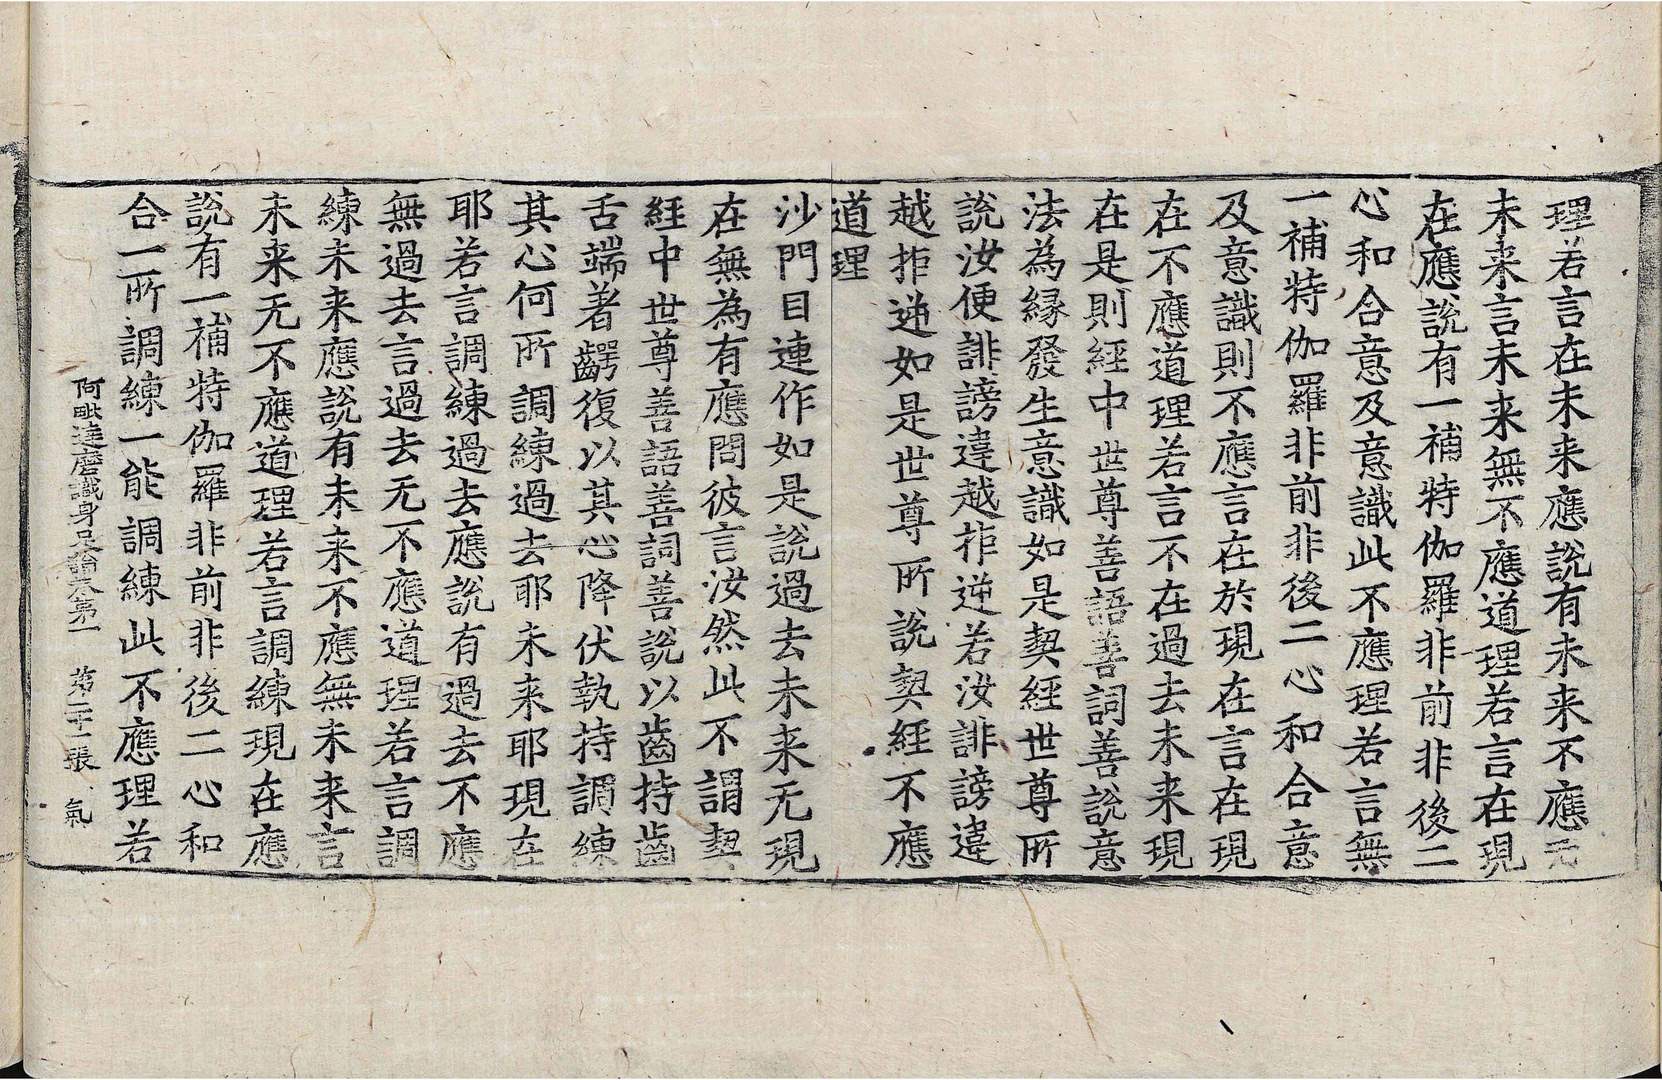 理若言在未来應說有未来不應无
未来言未来無不應道理若言在現
在應說有一補特伽羅非前非後二
心和合意及意識此不應理若言無
一補特伽羅非前非後二心和合意
及意識則不應言在於現在言在現
在不應道理若言不在過去未来現
在是則經中世尊善語善詞善說意
法為緣發生意識如是契經世尊所
說汝便誹謗違越拒逆若汝誹謗違
越拒逆如是世尊所說契經不應
道理
沙門目連作如是說過去未来无現
在無為有應問彼言汝然此不謂契
経中世尊善語善詞善說以齒持齒
舌端著齶復以其心降伏執持調練
其心何所調練過去耶未来耶現在
耶若言調練過去應說有過去不應
無過去言過去无不應道理若言調
練未来應說有未来不應無未来言
未来无不應道理若言調練現在應
說有一補特伽羅非前非後二心和
合一所調練一能調練此不應理若
阿毗達磨識身足論卷第一　第二十一張　氣